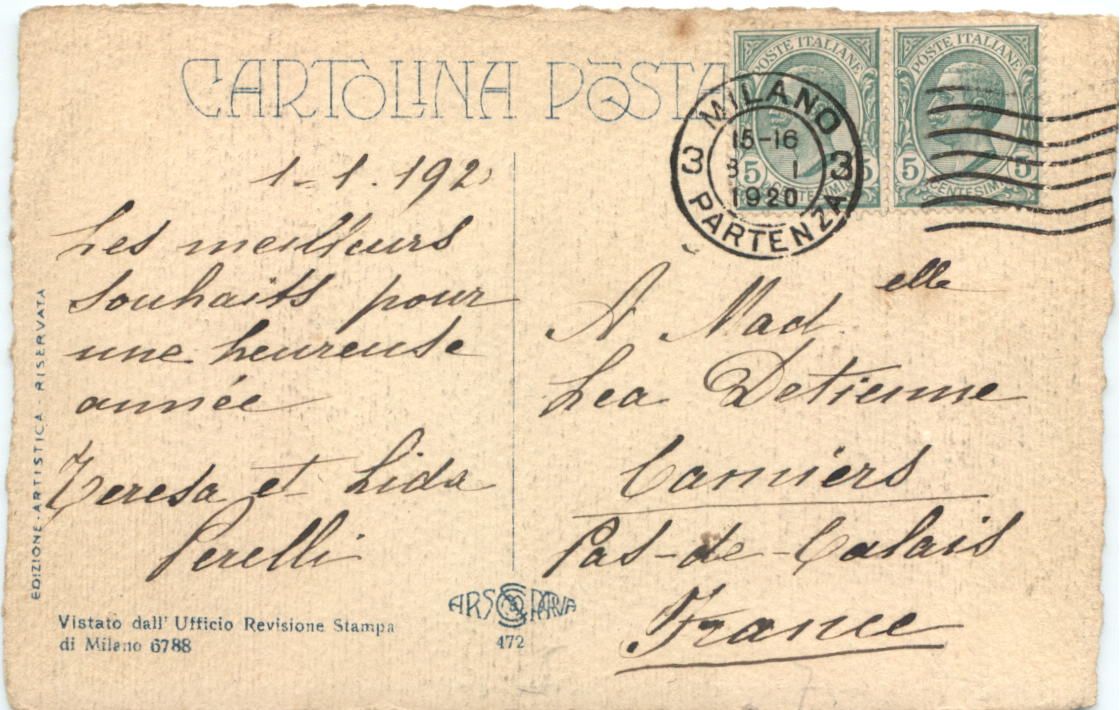 CARTOLINA POSTA
POSTE ITALIANE
5 5
CENTESIMI
POSTE ITALIANE
5 5
CENTESIMI
MILANO
3 3
15-16
1
1920
PARTENZA
1-1.192
Les meilleurs
souhaits pour
une heureuse
année
Teresa et Lida
Perelli
A Mad.elle
Lea Detienne
Camiers
Pas-de-Calais
France
EDIZIONE-ARTISTICA - RISERVATA
Vistato dall' Ufficio Revisione Stampa
di Milano 6788
ARS PARVA
472